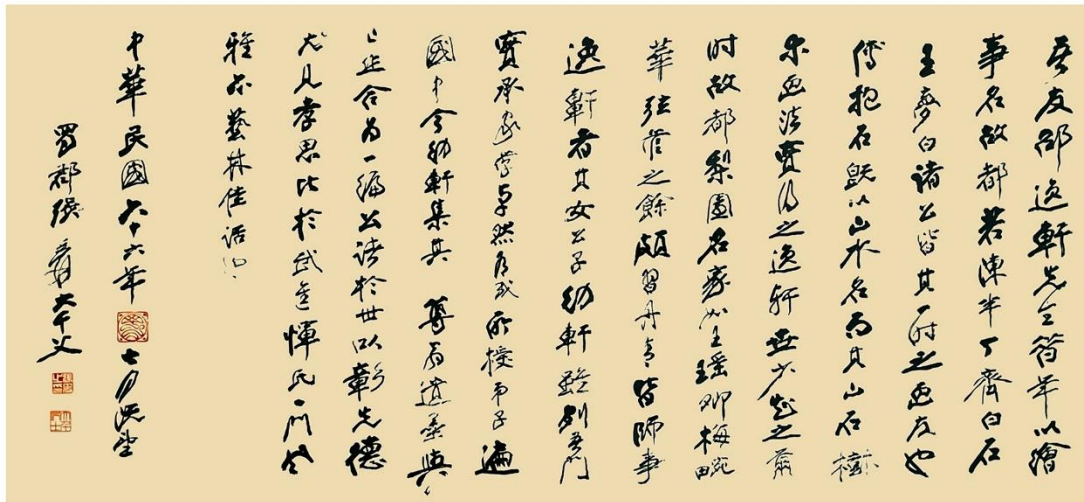 吾友邵逸軒先生年以繪
事名故都若陳半丁齊白石
王夢白諸公皆其一时之畫友也
傅抱石既以山水名而其山石樹
木畫法實得之逸軒世少知之爾
时故都梨園名家如王瑤卿梅畹
華弦管之餘頗習丹青皆師事
逸軒者其女公子幼軒雖列吾門
實承家學卓然有成所授弟子遍
國中今幼軒集其尊翁遺墨與
己作合为一編公諸於世以彰先德
尤見孝思比於武進惲氏一門風
雅亦藝林佳話也
中華民國六十六年七月既望
蜀郡張爰大千父